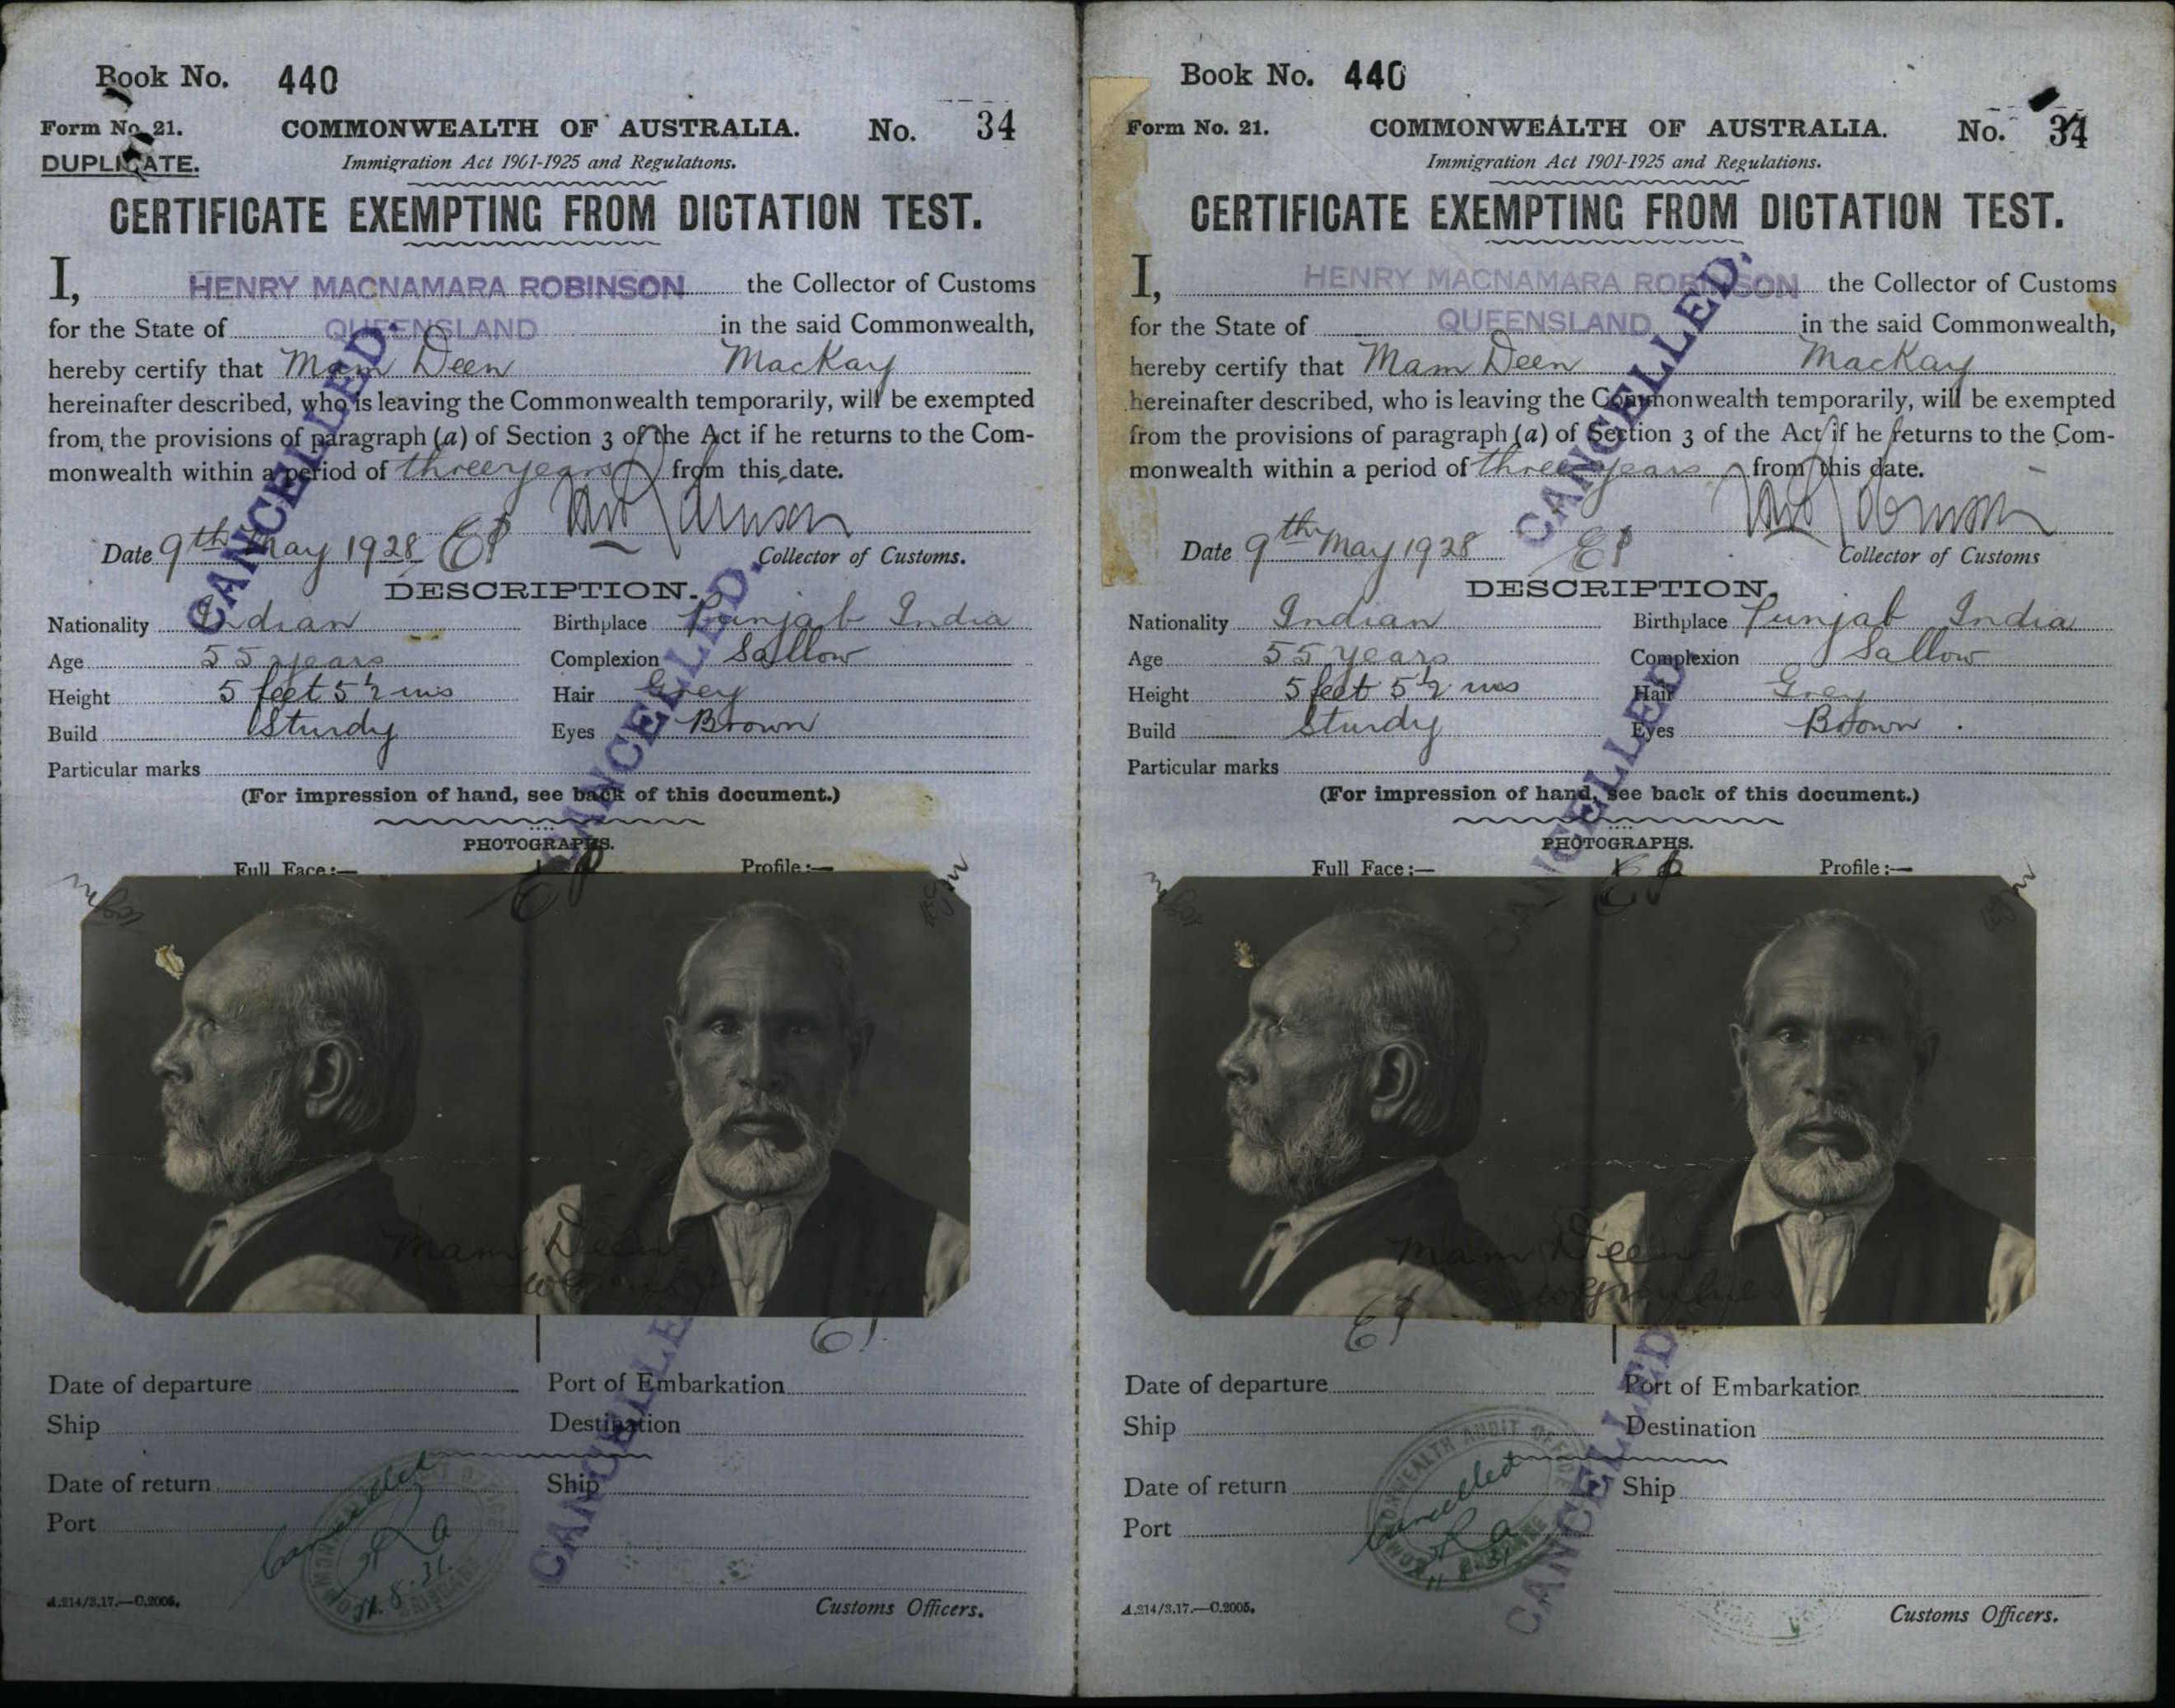 Book No. 440
Form No. 21. COMMONWEALTH OF AUSTRALIA. No. 34
DUPLICATE. Immigration Act 1901-1925 and Regulations.
CERTIFICATE EXEMPTING FROM DICTATION TEST.
I, HENRY MACNAMARA ROBINSON the Collector of Customs
for the State of QUEENSLAND in the said Commonwealth,
hereby certify that Mam Deen MacKay
hereinafter described, who is leaving the Commonwealth temporarily, will be exempted
from the provisions of paragraph (a) of Section 3 of the Act if he returns to the Com-
monwealth within a period of three years from this date.
Date 9th May 1928 EP
Collector of Customs.
DESCRIPTION.
Nationality Indian Birthplace Punjab India
Age 55 years Complexion Sallow
Height 5 feet 5½ ins Hair Grey
Build Sturdy Eyes Brown
Particular marks
(For impression of hand, see back of this document.)
PHOTOGRAPHS.
Full Face:— Profile:—
EP
Mam Deen
Date of departure Port of Embarkation
Ship Destination
Date of return Ship
Port
Cancelled
11.8.31.
A.214/3.17.—C.2005. Customs Officers.
CANCELLED.
CANCELLED.
CANCELLED
Book No. 440
Form No. 21. COMMONWEALTH OF AUSTRALIA. No. 34
Immigration Act 1901-1925 and Regulations.
CERTIFICATE EXEMPTING FROM DICTATION TEST.
I, HENRY MACNAMARA ROBINSON the Collector of Customs
for the State of QUEENSLAND in the said Commonwealth,
hereby certify that Mam Deen MacKay
hereinafter described, who is leaving the Commonwealth temporarily, will be exempted
from the provisions of paragraph (a) of Section 3 of the Act if he returns to the Com-
monwealth within a period of three years from this date.
Date 9th May 1928 EP
Collector of Customs
DESCRIPTION.
Nationality Indian Birthplace Punjab India
Age 55 years Complexion Sallow
Height 5 feet 5½ ins Hair Grey
Build Sturdy Eyes Brown
Particular marks
(For impression of hand, see back of this document.)
PHOTOGRAPHS.
Full Face:— Profile:—
EP
Mam Deen
Date of departure Port of Embarkation
Ship Destination
COMMONWEALTH AUDIT OFFICE
Date of return Ship
Port
Cancelled
BRISBANE
A.214/3.17.—C.2005. Customs Officers.
CANCELLED.
CANCELLED
CANCELLED